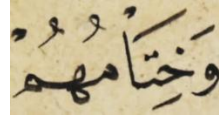 وَخِتَامُهُمْ